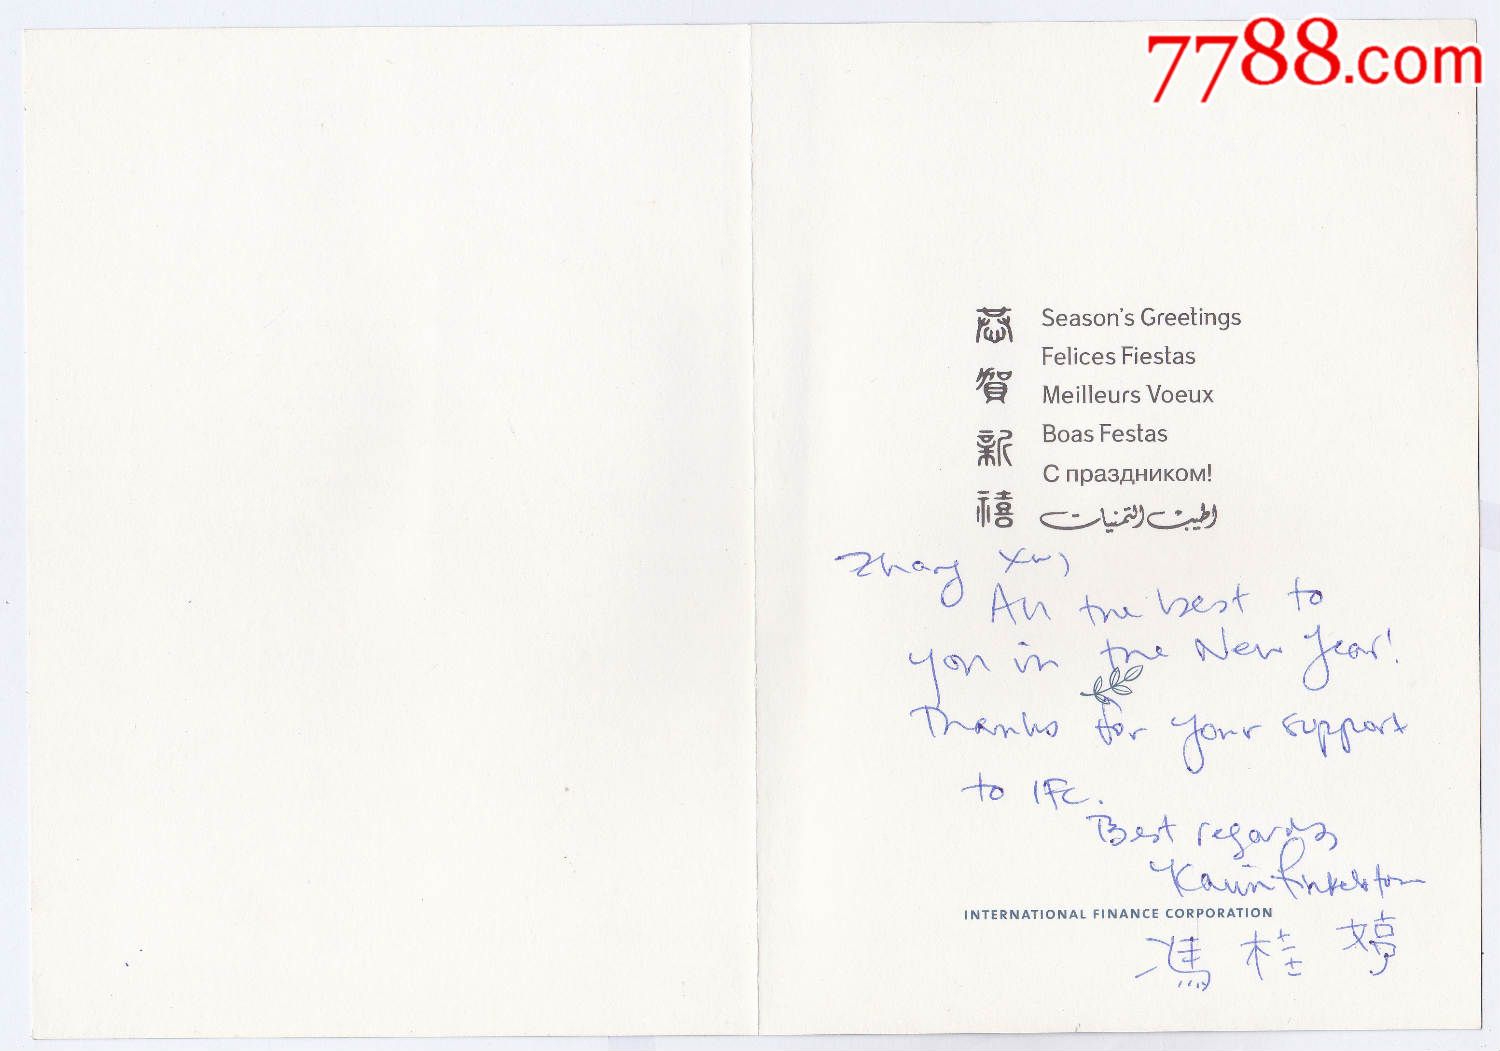 7788.com
恭賀新禧
Season's Greetings
Felices Fiestas
Meilleurs Voeux
Boas Festas
С праздником!
اطيب التمنيات
Zhang Xu,
All the best to
you in the New Year!
Thanks for your support
to IFC.
Best regards
Karin Finkelston
INTERNATIONAL FINANCE CORPORATION
馮桂婷